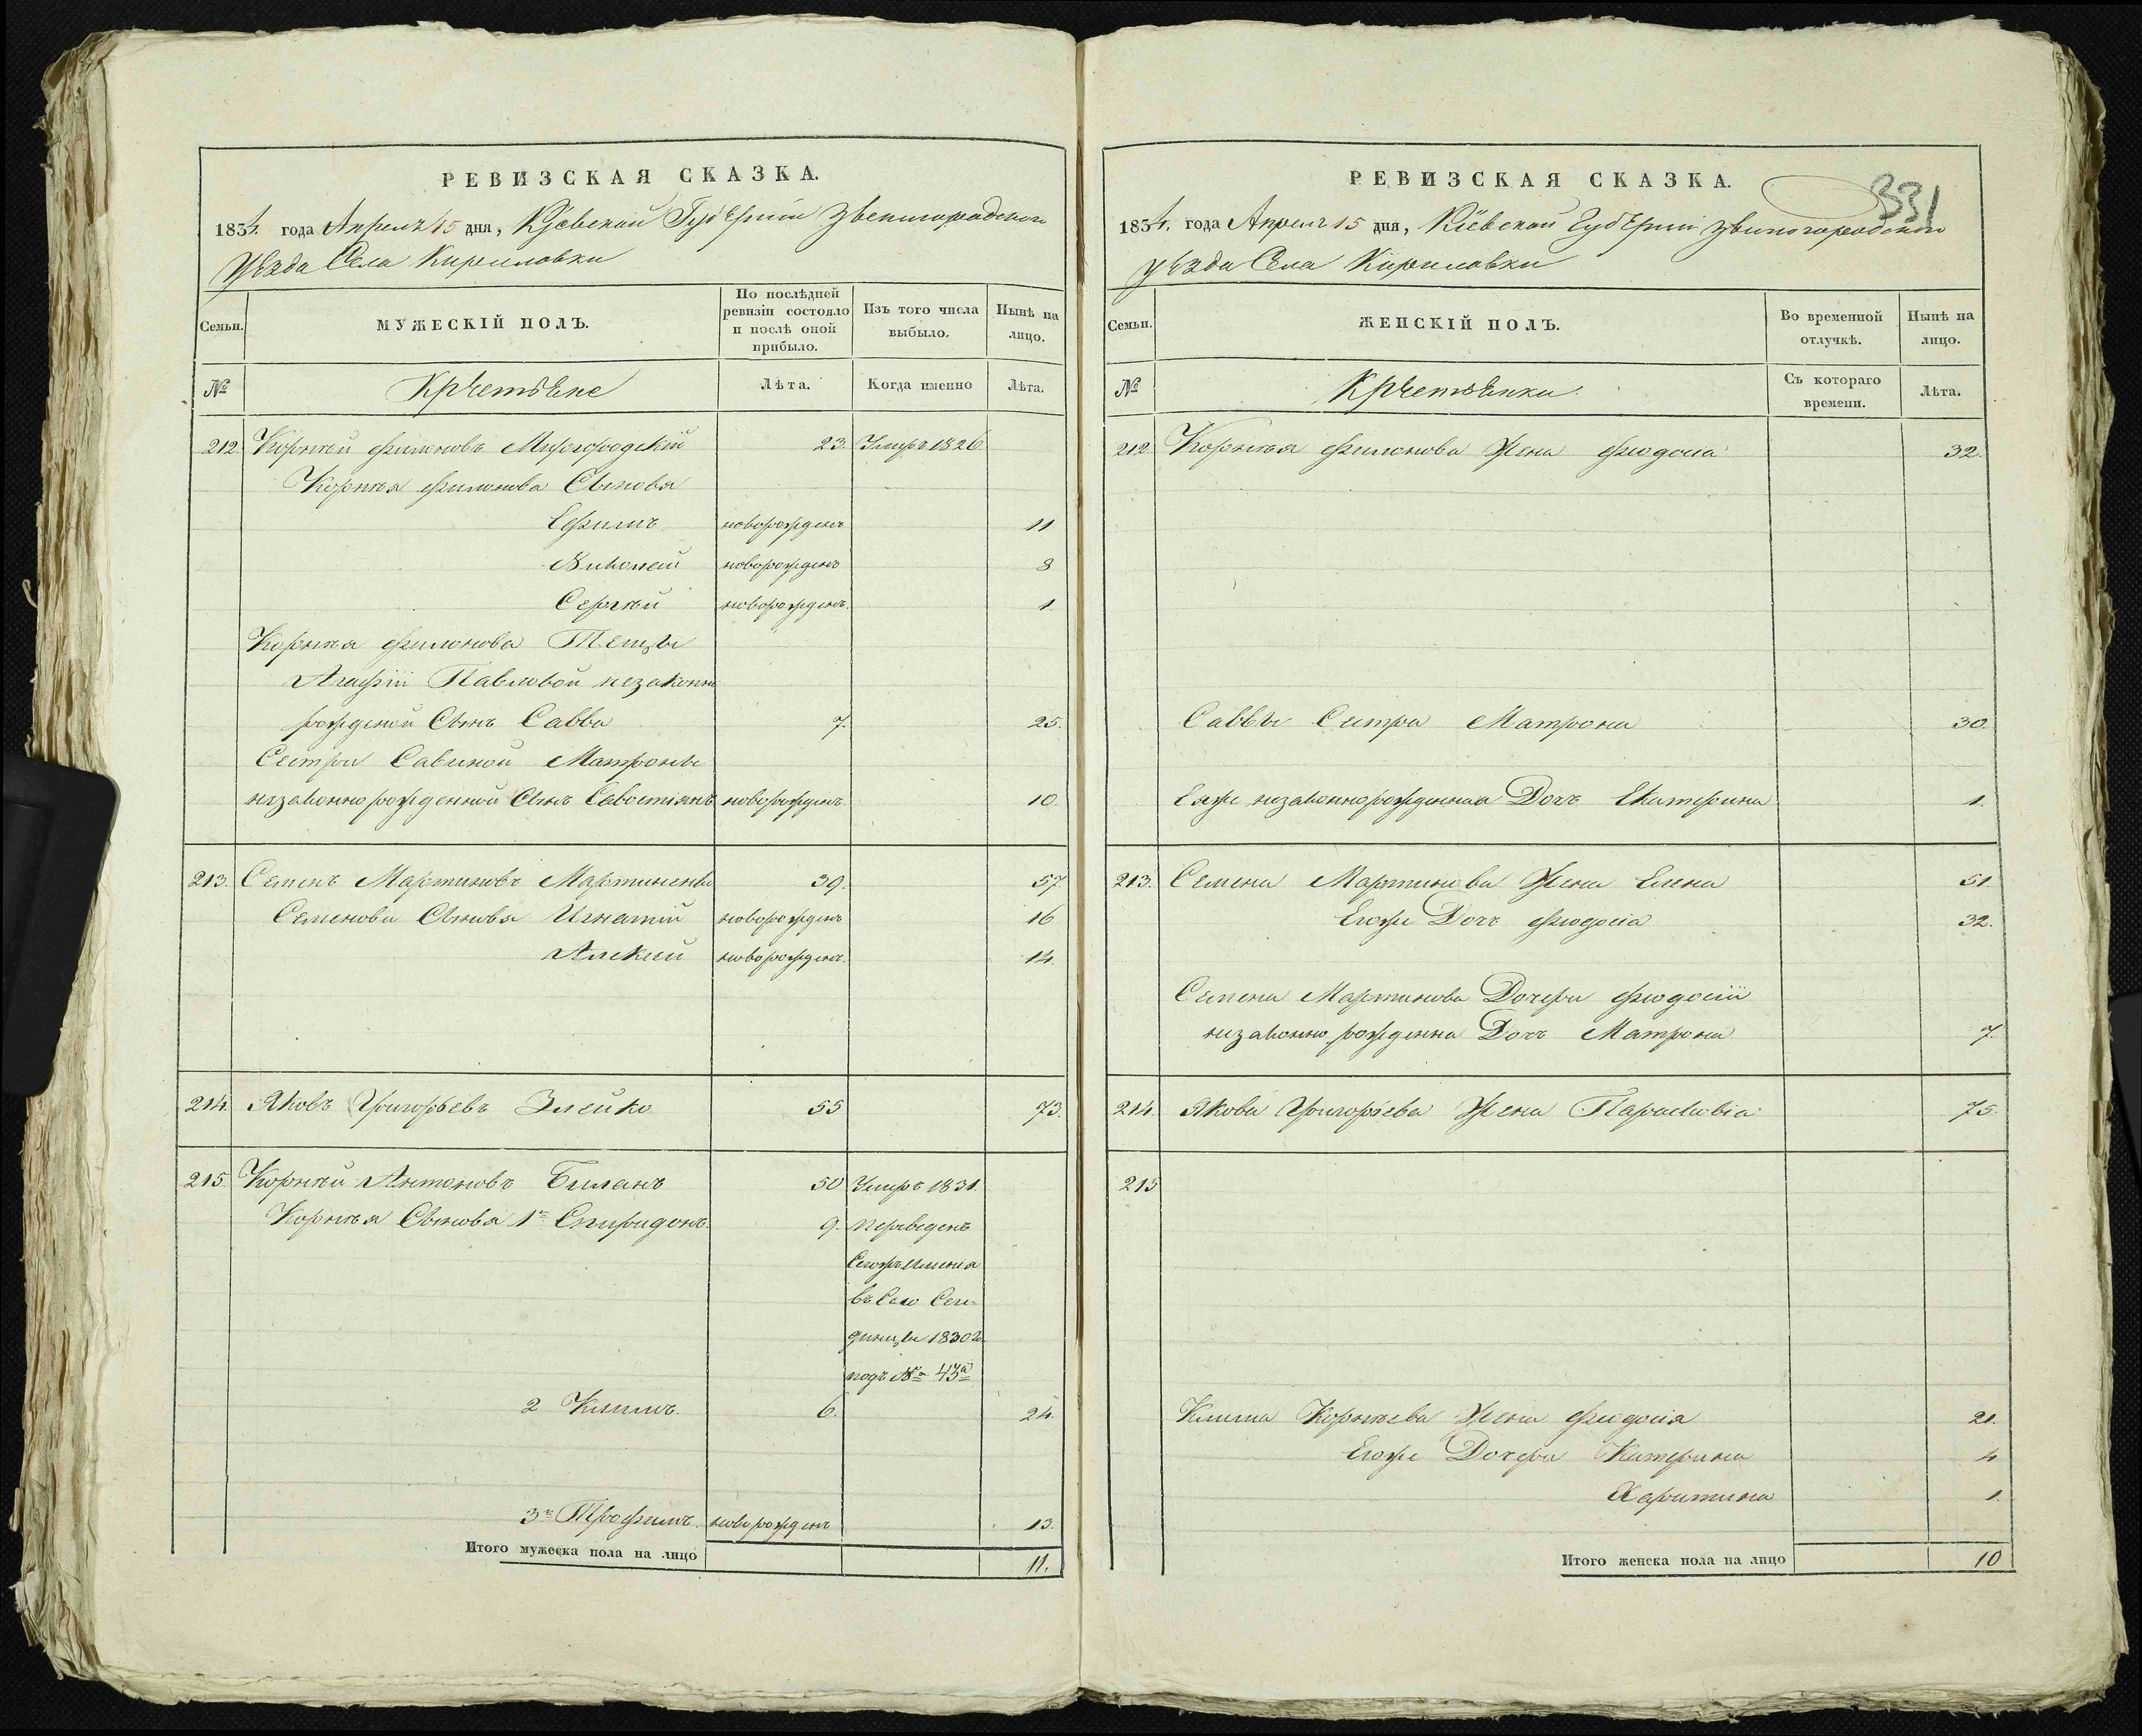 РЕВИЗСКАЯ СКАЗКА.
1834. года Апреля 15 дня, Кіевской Губѣрніи Звенигородского
Уѣзда Села Кириловки
Семьи. МУЖЕСКІЙ ПОЛЪ. По послѣдней ревизіи состояло и послѣ оной прибыло. Изъ того числа выбыло. Нынѣ на лицо.
№ Крѣстьѣне Лѣта. Когда именно Лѣта.
212. Корнѣй Филоновъ Миргородскій 23. Умеръ 1826
Корнѣя Филонова Сыновя
Ефимъ новорожденъ 11
Николай новорожденъ 8
Сергѣй новорожденъ. 1
Корнѣя Филонова Тещи
Агафіи Павловой незаконно
рожденой Сынъ Савва 7. 25.
Сестри Савиной Матроны
незаконнорожденной Сынъ Савостіянъ новорожденъ. 10.
213. Семенъ Мартиновъ 39. 57
Семенови Сыновя Игнатій новорожденъ 16
Алексій новорожденъ. 14.
214. Яковъ Григорьевъ Змейко 55 73.
215. Корнѣй Антоновъ Биланъ 50 Умеръ 1831.
Корнѣя Сыновя 1й Спиридонъ. 9. переведенъ
Сегожъ имѣнія
въ Село
1830 г.
подъ № 43а
2 Климъ. 6. 24.
3й Трофимъ. новорожденъ 13.
Итого мужеска пола на лицо 11.
РЕВИЗСКАЯ СКАЗКА.
331
1834. года Апреля 15 дня, Кіевской Губѣрніи Звиногородского
уѣзда Села Кириловки
Семьи. ЖЕНСКІЙ ПОЛЪ. Во временной отлучкѣ. Нынѣ на лицо.
№ Крѣстьѣнки. Съ котораго времени. Лѣта.
212. Корнѣя Филонова Жена Феодосіа 32.
Саввы Сестра Матрона 30.
Еяже незаконнорожденная Дочъ Екатерина 1.
213. Семена Мартинова Жена Елена 51.
Егоже Дочъ Феодосіа 32.
Семена Мартинова Дочери Феодосіи
незаконно рожденна Дочъ Матрона 7.
214. Якова Григоріева Жена Параскевіа 75.
215
Клима Корнѣева Жена Феодосія 21.
Егоже Дочери Катерина 4
Харитина 1.
Итого женска пола на лицо 10